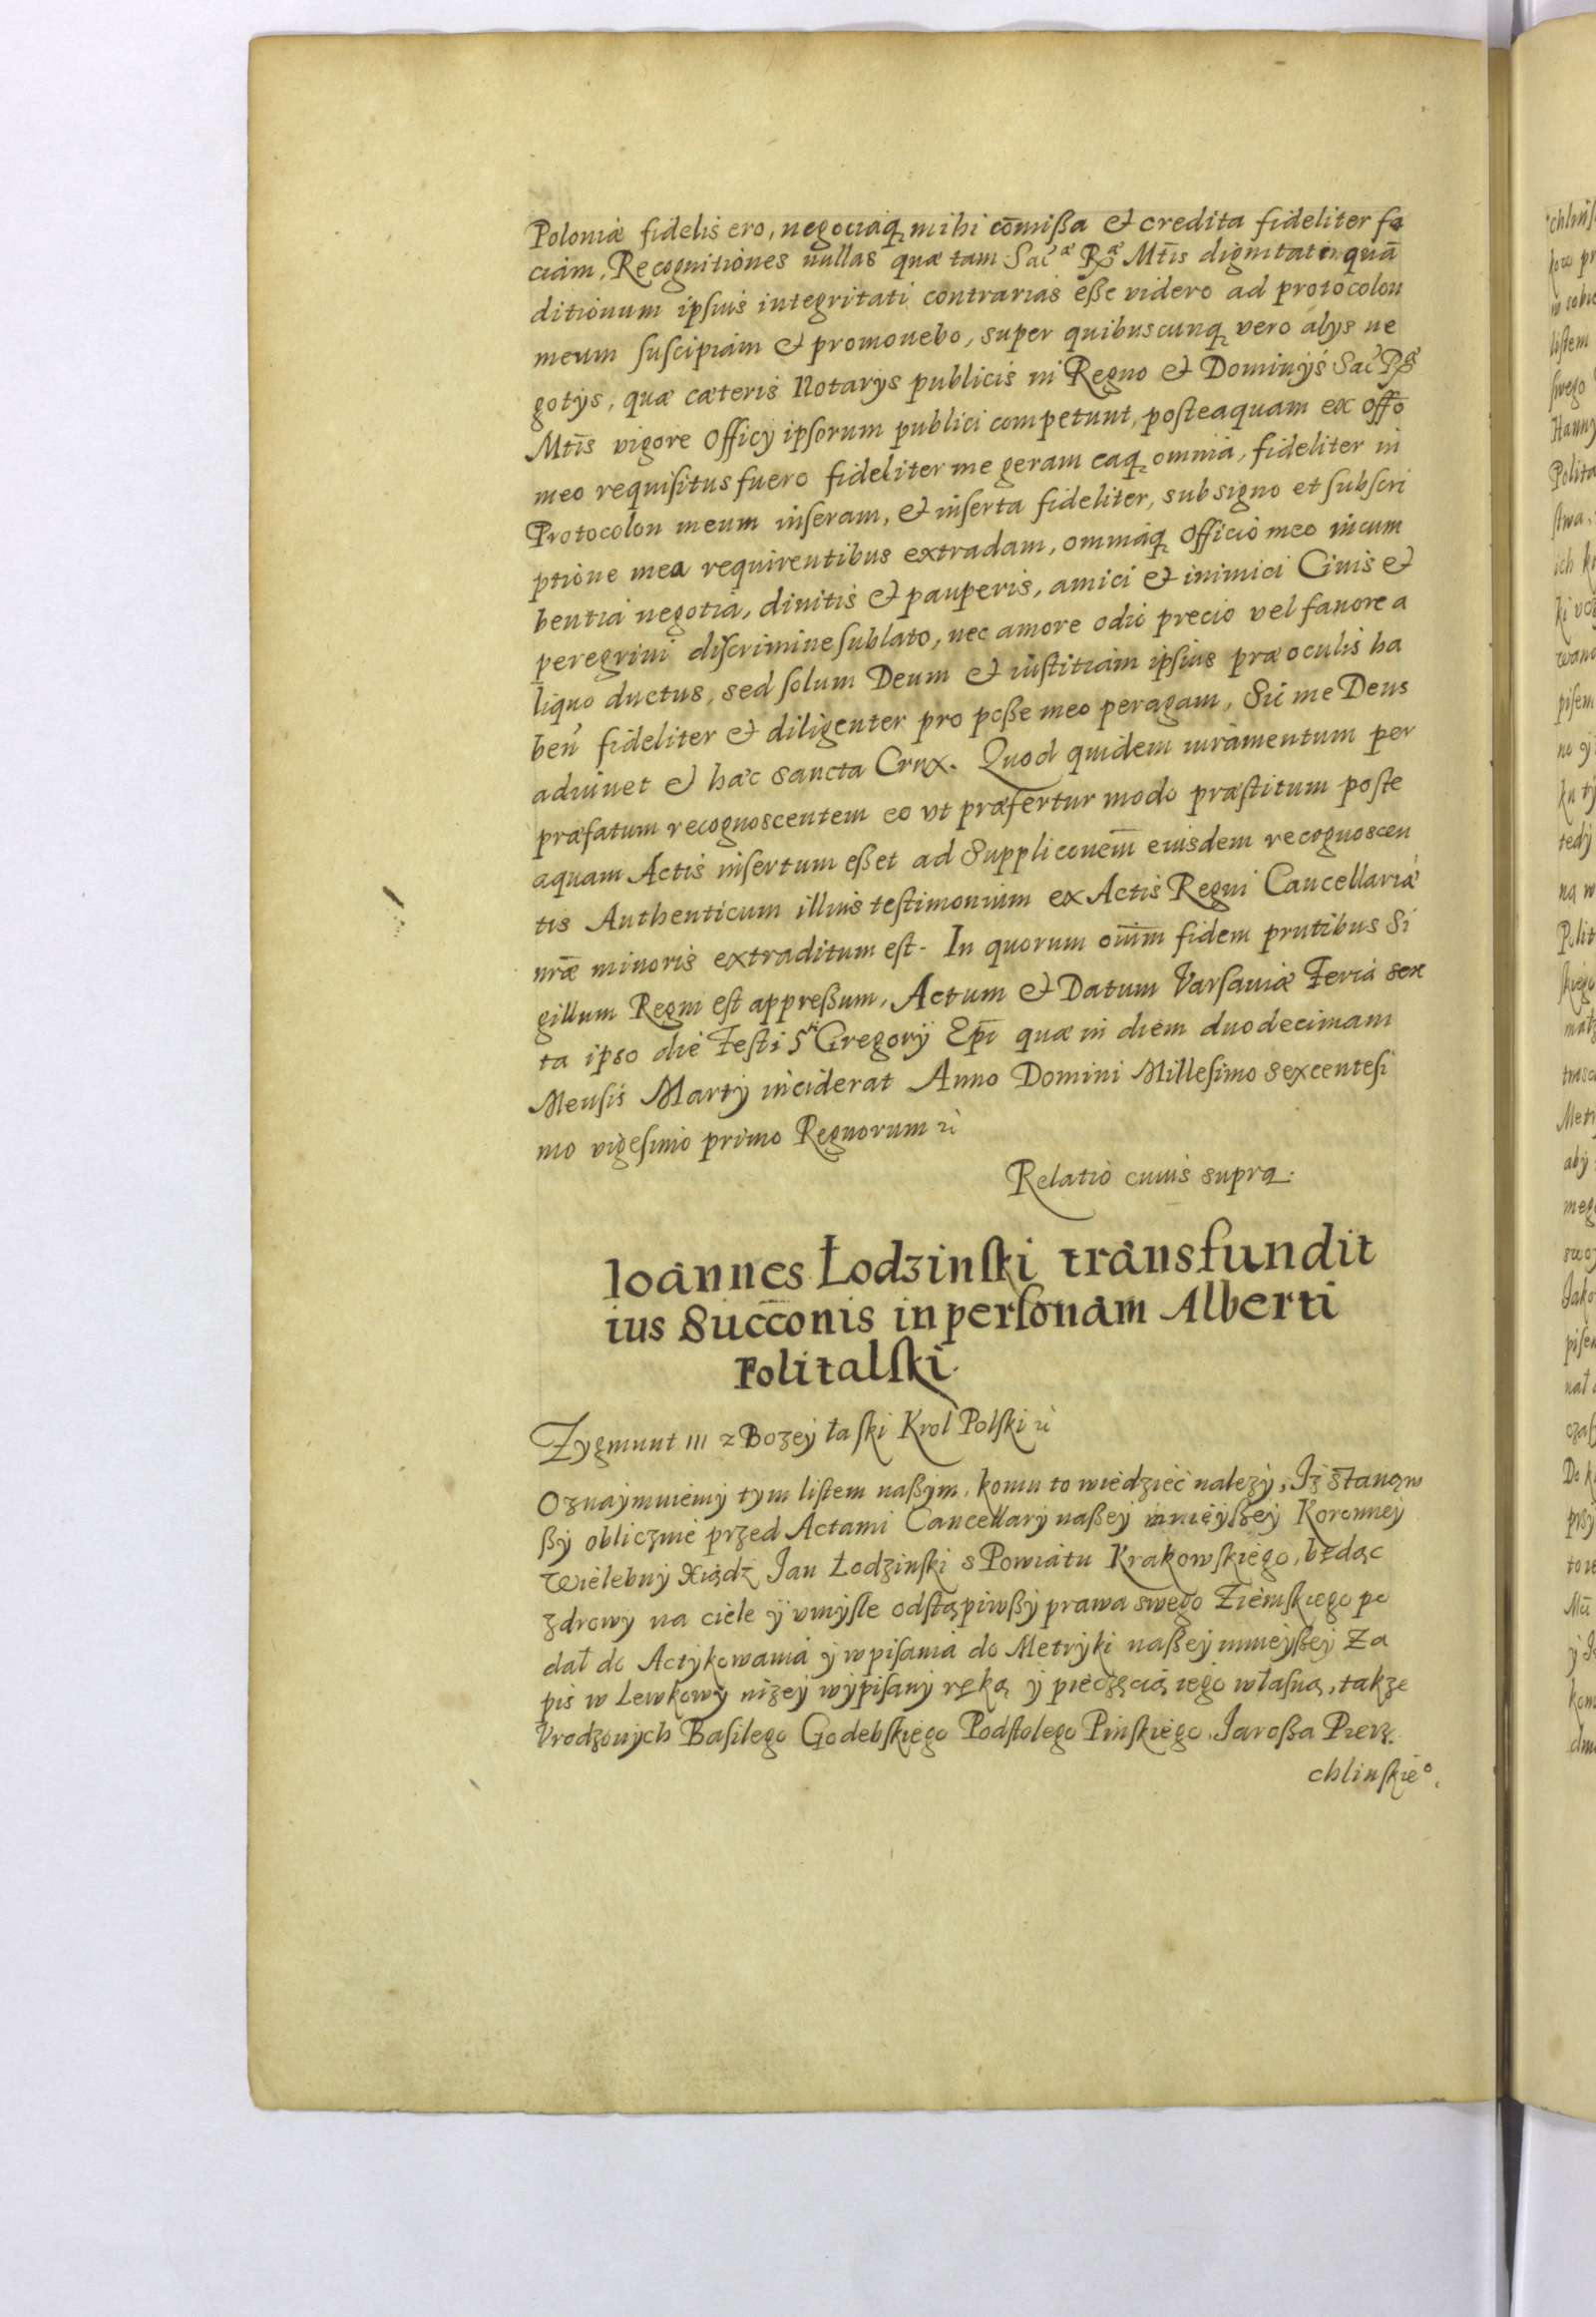 Poloniæ fidelis ero, negociaq₃ mihi com̄ißa et credita fideliter fa
ciam, Recognitiones nullas quæ tam Sacæ Rᵍæ Mt̄is dignitati quā
ditionum ipsius integritati contrarias eße videro ad protocolon
meum suscipiam et promouebo, super quibuscunq₃ vero alÿs ne
gotÿs, quæ cæteris Notarÿs publicis in Regno et Dominÿs Sac Rᵍæ
Mt̄is vigore Officÿ ipsorum publici competunt, posteaquam ex offo
meo requisitus fuero fideliter me geram eaq₃ omnia, fideliter in
Protocolon meum inseram, et inserta fideliter, sub signo et subscri
ptione mea requirentibus extradam, omniaq₃ Officio meo incum
bentia negotia, diuitis et pauperis, amici et inimici Ciuis et
peregrini discrimine sublato, nec amore odio precio vel fauore a
liquo ductus, sed solum Deum et iustitiam ipsius præ oculis ha
ben̄ fideliter et diligenter pro poße meo peragam, Sic me Deus
adiuuet et hæc sancta Crux. Quod quidem iuramentum per
præfatum recognoscentem eo vt præfertur modo præstitum poste
aquam Actis insertum eßet ad Suppliconem̄ eiusdem recognoscen
tis Authenticum illius testimonium ex Actis Regni Cancellariæ
nr̄æ minoris extraditum est. In quorum oium̄ fidem prntibus Si
gillum Regni est appreßum, Actum et Datum Varsauiæ Feria sex
ta ipso die Festi Sᵗⁱ Gregorÿ Ep̄i quæ in diem duodecimam
Mensis Martÿ inciderat Anno Domini Millesimo sexcentesi
mo vigesimo primo Regnorum ꝛc
Relatio cuius supra.
Ioannes Łodzinski transfundit
ius Succonis in personam Alberti
Politalski.
Zygmunt III z Bozeÿ łaski Krol Polski ꝛc
Oznaÿmuiemÿ tym listem naßÿm, komu to wiedzieć nalezÿ, Iz Stanąw
ßÿ obliczmie przed Actami Cancellarÿ naßeÿ mnieÿßeÿ Koronneÿ
Wielebnÿ Xiądz Jan Łodzinski s Powiatu Krakowskiego, będąc
zdrowy na ciele ÿ vmÿsle odstąpiwßÿ prawa swego Ziemskiego po
dał do Actÿkowania ÿ wpisania do Metrÿki naßeÿ mnieÿßeÿ Za
pis w Lewkowÿ nizeÿ wÿpisanÿ ręką ÿ pieczęcią iego własną, takze
Vrodzonÿch Basilego Godebskiego Podstolego Pinskiego, Jaroßa Pierz
chlinskie°.